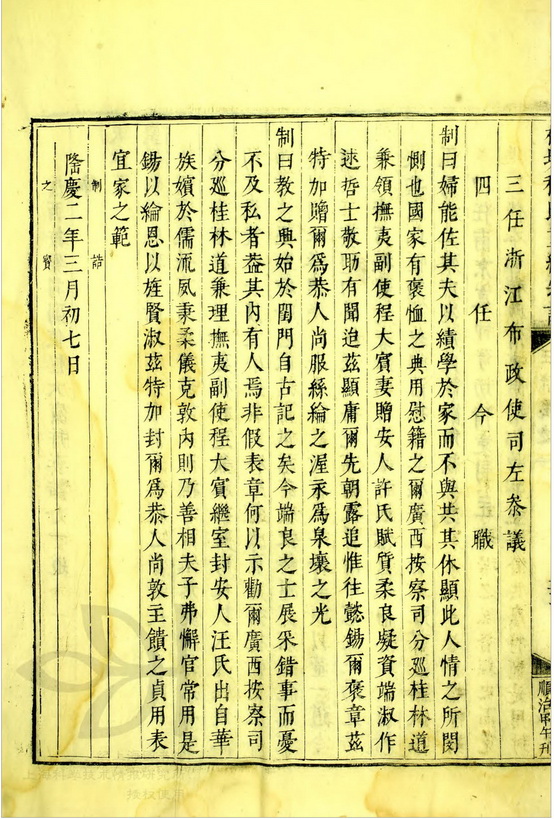 三任浙江布政使司左叅議
四任今職
制曰婦能佐其夫以績學於家而不與共其休顯此人情之所閔
惻也國家有褒恤之典用慰籍之爾廣西按察司分廵桂林道
兼領撫夷副使程大賓妻贈安人許氏賦質柔良凝資端淑作
逑哲士敬助有聞迨茲顯庸爾先朝露追惟往懿錫爾褒章茲
特加贈爾爲恭人尚服絲綸之渥永爲泉壤之光
制曰教之典始於閨門自古記之矣今端良之士展采錯事而憂
不及私者葢其內有人焉非假表章何以示勸爾廣西按察司
分廵桂林道兼理撫夷副使程大賓繼室封安人汪氏出自華
族嬪於儒流夙秉柔儀克敦內則乃善相夫子弗懈官常用是
錫以綸恩以旌賢淑茲特加封爾爲恭人尚敦主饋之貞用表
宜家之範
制誥
隆慶二年三月初七日
之寶
順治甲午刊
上海科學技術情報研究所
授权使用